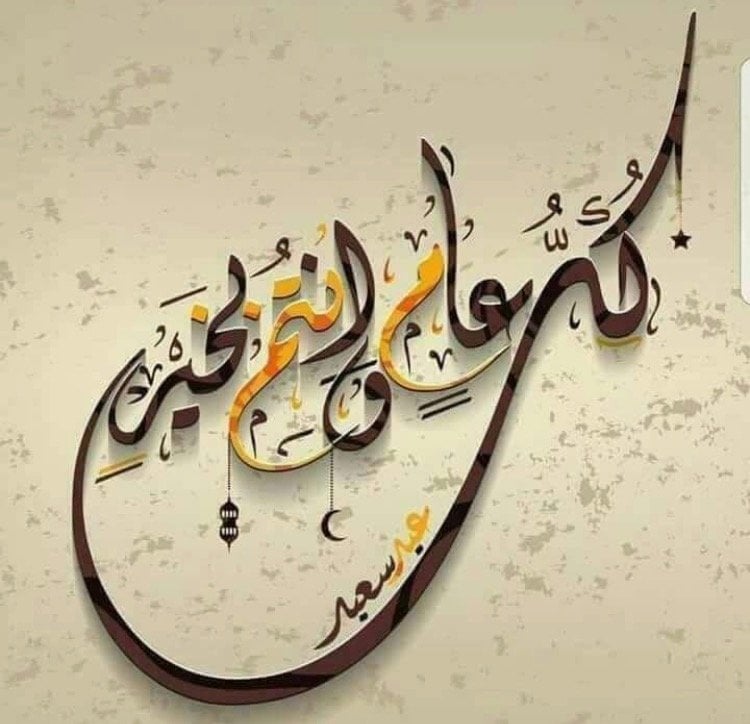 كُلُّ عامٍ وانتُم بخَيرٍ
عيد سعيد